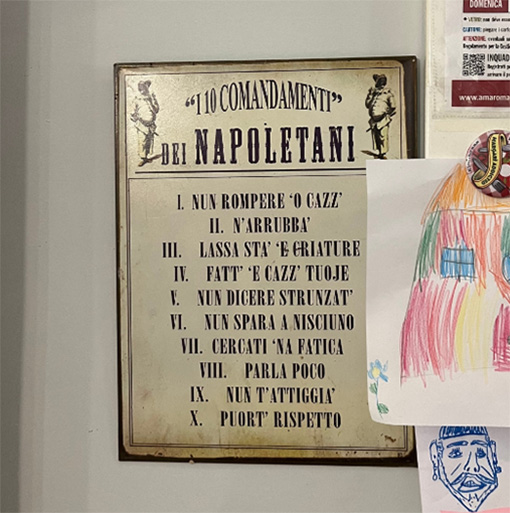 "I 10 COMANDAMENTI"
DEI NAPOLETANI
I. NUN ROMPERE 'O CAZZ'
II. N'ARRUBBA'
III. LASSA STA' 'E CRIATURE
IV. FATT' 'E CAZZ' TUOJE
V. NUN DICERE STRUNZAT'
VI. NUN SPARA A NISCIUNO
VII. CERCATI 'NA FATICA
VIII. PARLA POCO
IX. NUN T'ATTIGGIA'
X. PUORT' RISPETTO
DOMENICA
INQUAD
www.amaroma